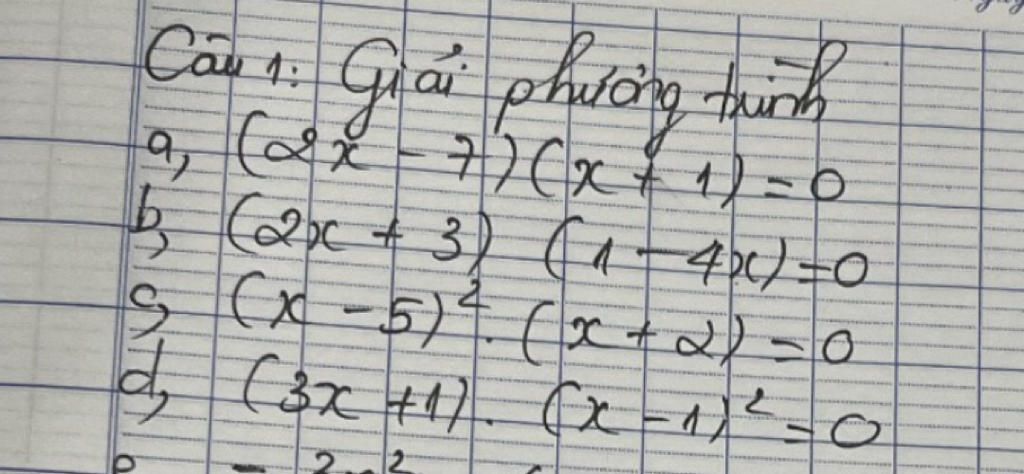 Câu 1: Giải phương trình
a, (2x - 7) (x + 1) = 0
b, (2x + 3) (1 - 4x) = 0
c, (x - 5)². (x + 2) = 0
d, (3x + 1). (x - 1)² = 0